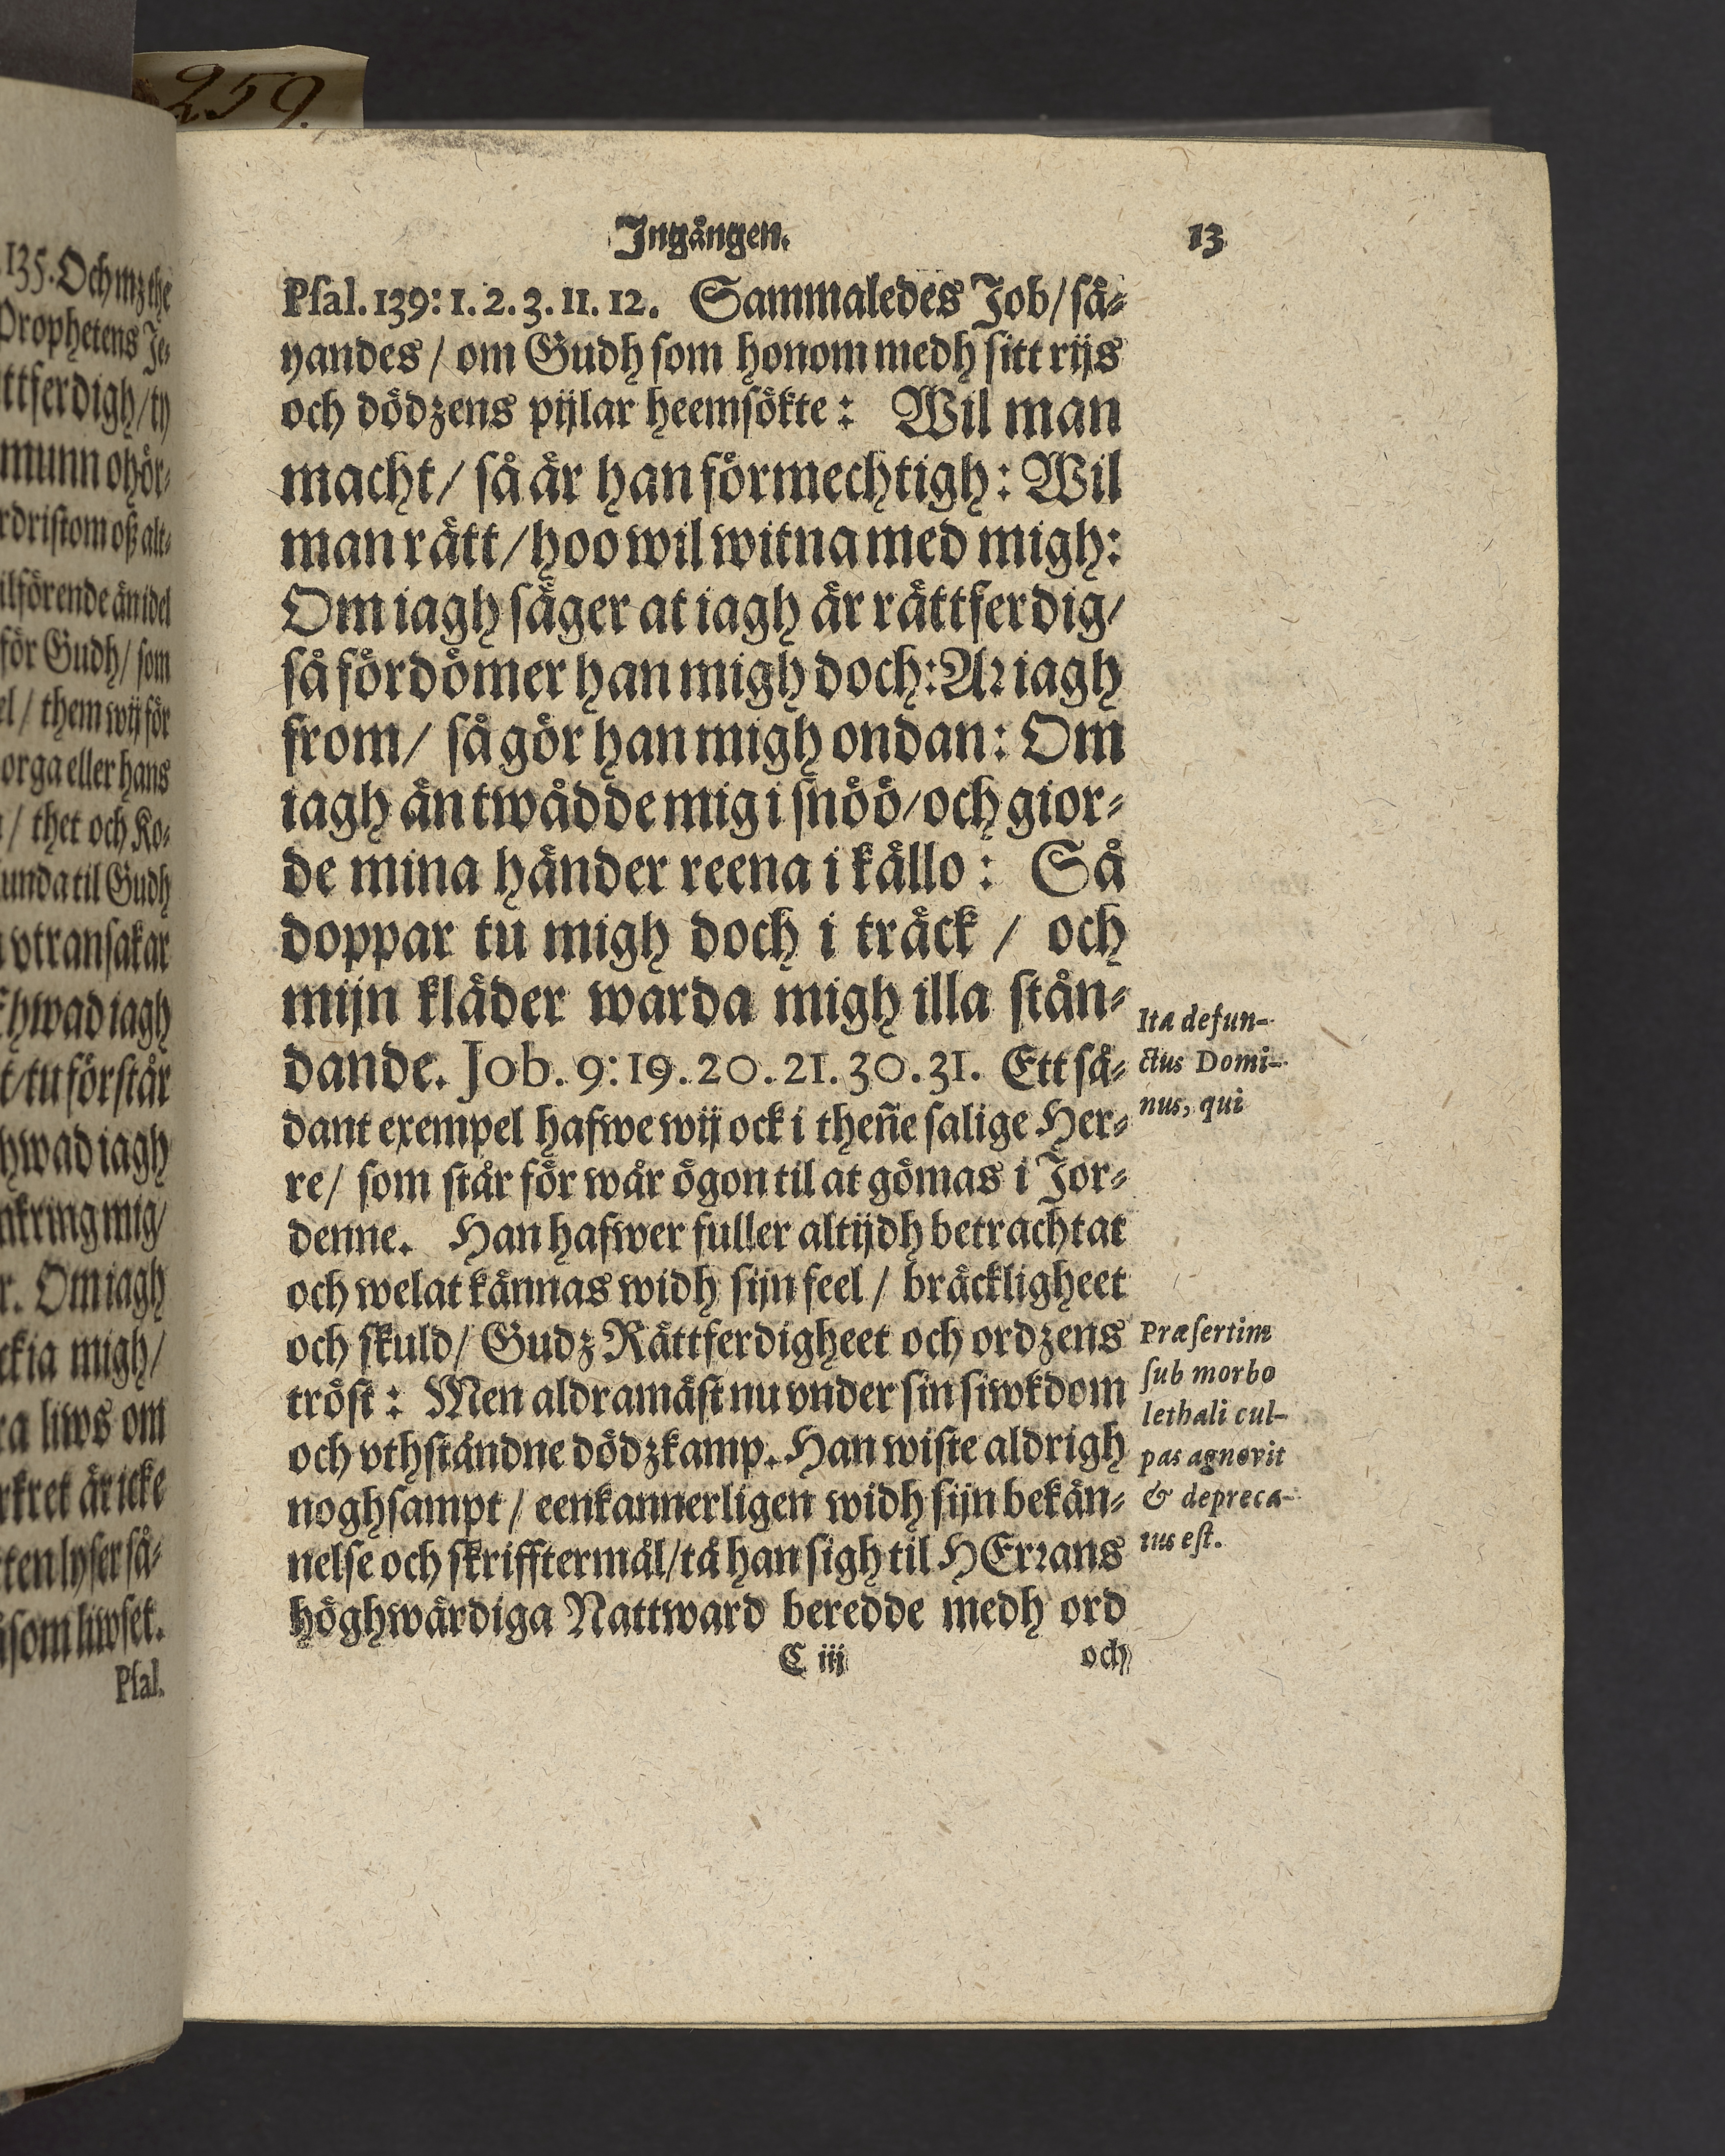 259.
135. Och mz the
Prophetens Je-
ttferdigh/ty
munn ohör-
rdristom oß alt-
ilförende än idel
för Gudh/ som
el / them wij för
orga eller hans
/ thet och Ko-
unda til Gudh
vtransakar
hwad iagh
t/tu förstår
hwad iagh
nkring mig/
r. Om iagh
ckia migh/
ra liws om
rkret är icke
ten lyser så-
som liwset.
Psal.
Ingången. 13
Psal. 139: 1. 2. 3. 11. 12. Sammaledes Job/ så-
yandes / om Gudh som honom medh sitt rijs
och dödzens pijlar heemsökte: Wil man
macht/ så är han förmechtigh: Wil
man rätt/hoo wil witna med migh:
Om iagh säger at iagh är rättferdig/
så fördömer han migh doch: Aꝛ iagh
from/ så gör han migh ondan: Om
iagh än twådde mig i snöö/och gior-
de mina händer reena i källo: Så
doppar tu migh doch i träck / och
mijn kläder warda migh illa stån-
dande. Job. 9: 19. 20. 21. 30. 31. Ett så-
dant exempel hafwe wij ock i theñe salige Her-
re/ som står för wår ögon til at gömas i Jor-
denne. Han hafwer fuller altijdh betrachtat
och welat kännas widh sijn feel / bräckligheet
och skuld/ Gudz Rättferdigheet och ordzens
tröst: Men aldramäst nu vnder sin siwkdom
och vthståndne dödzkamp. Han wiste aldrigh
noghsampt / eenkannerligen widh sijn bekän-
nelse och skrifftermål/tå han sigh til HErꝛans
höghwärdiga Nattward beredde medh ord
C iij och
Ita defun-
ctus Domi-
nus, qui
Præsertim
sub morbo
lethali cul-
pas agnovit
& depreca-
tus est.